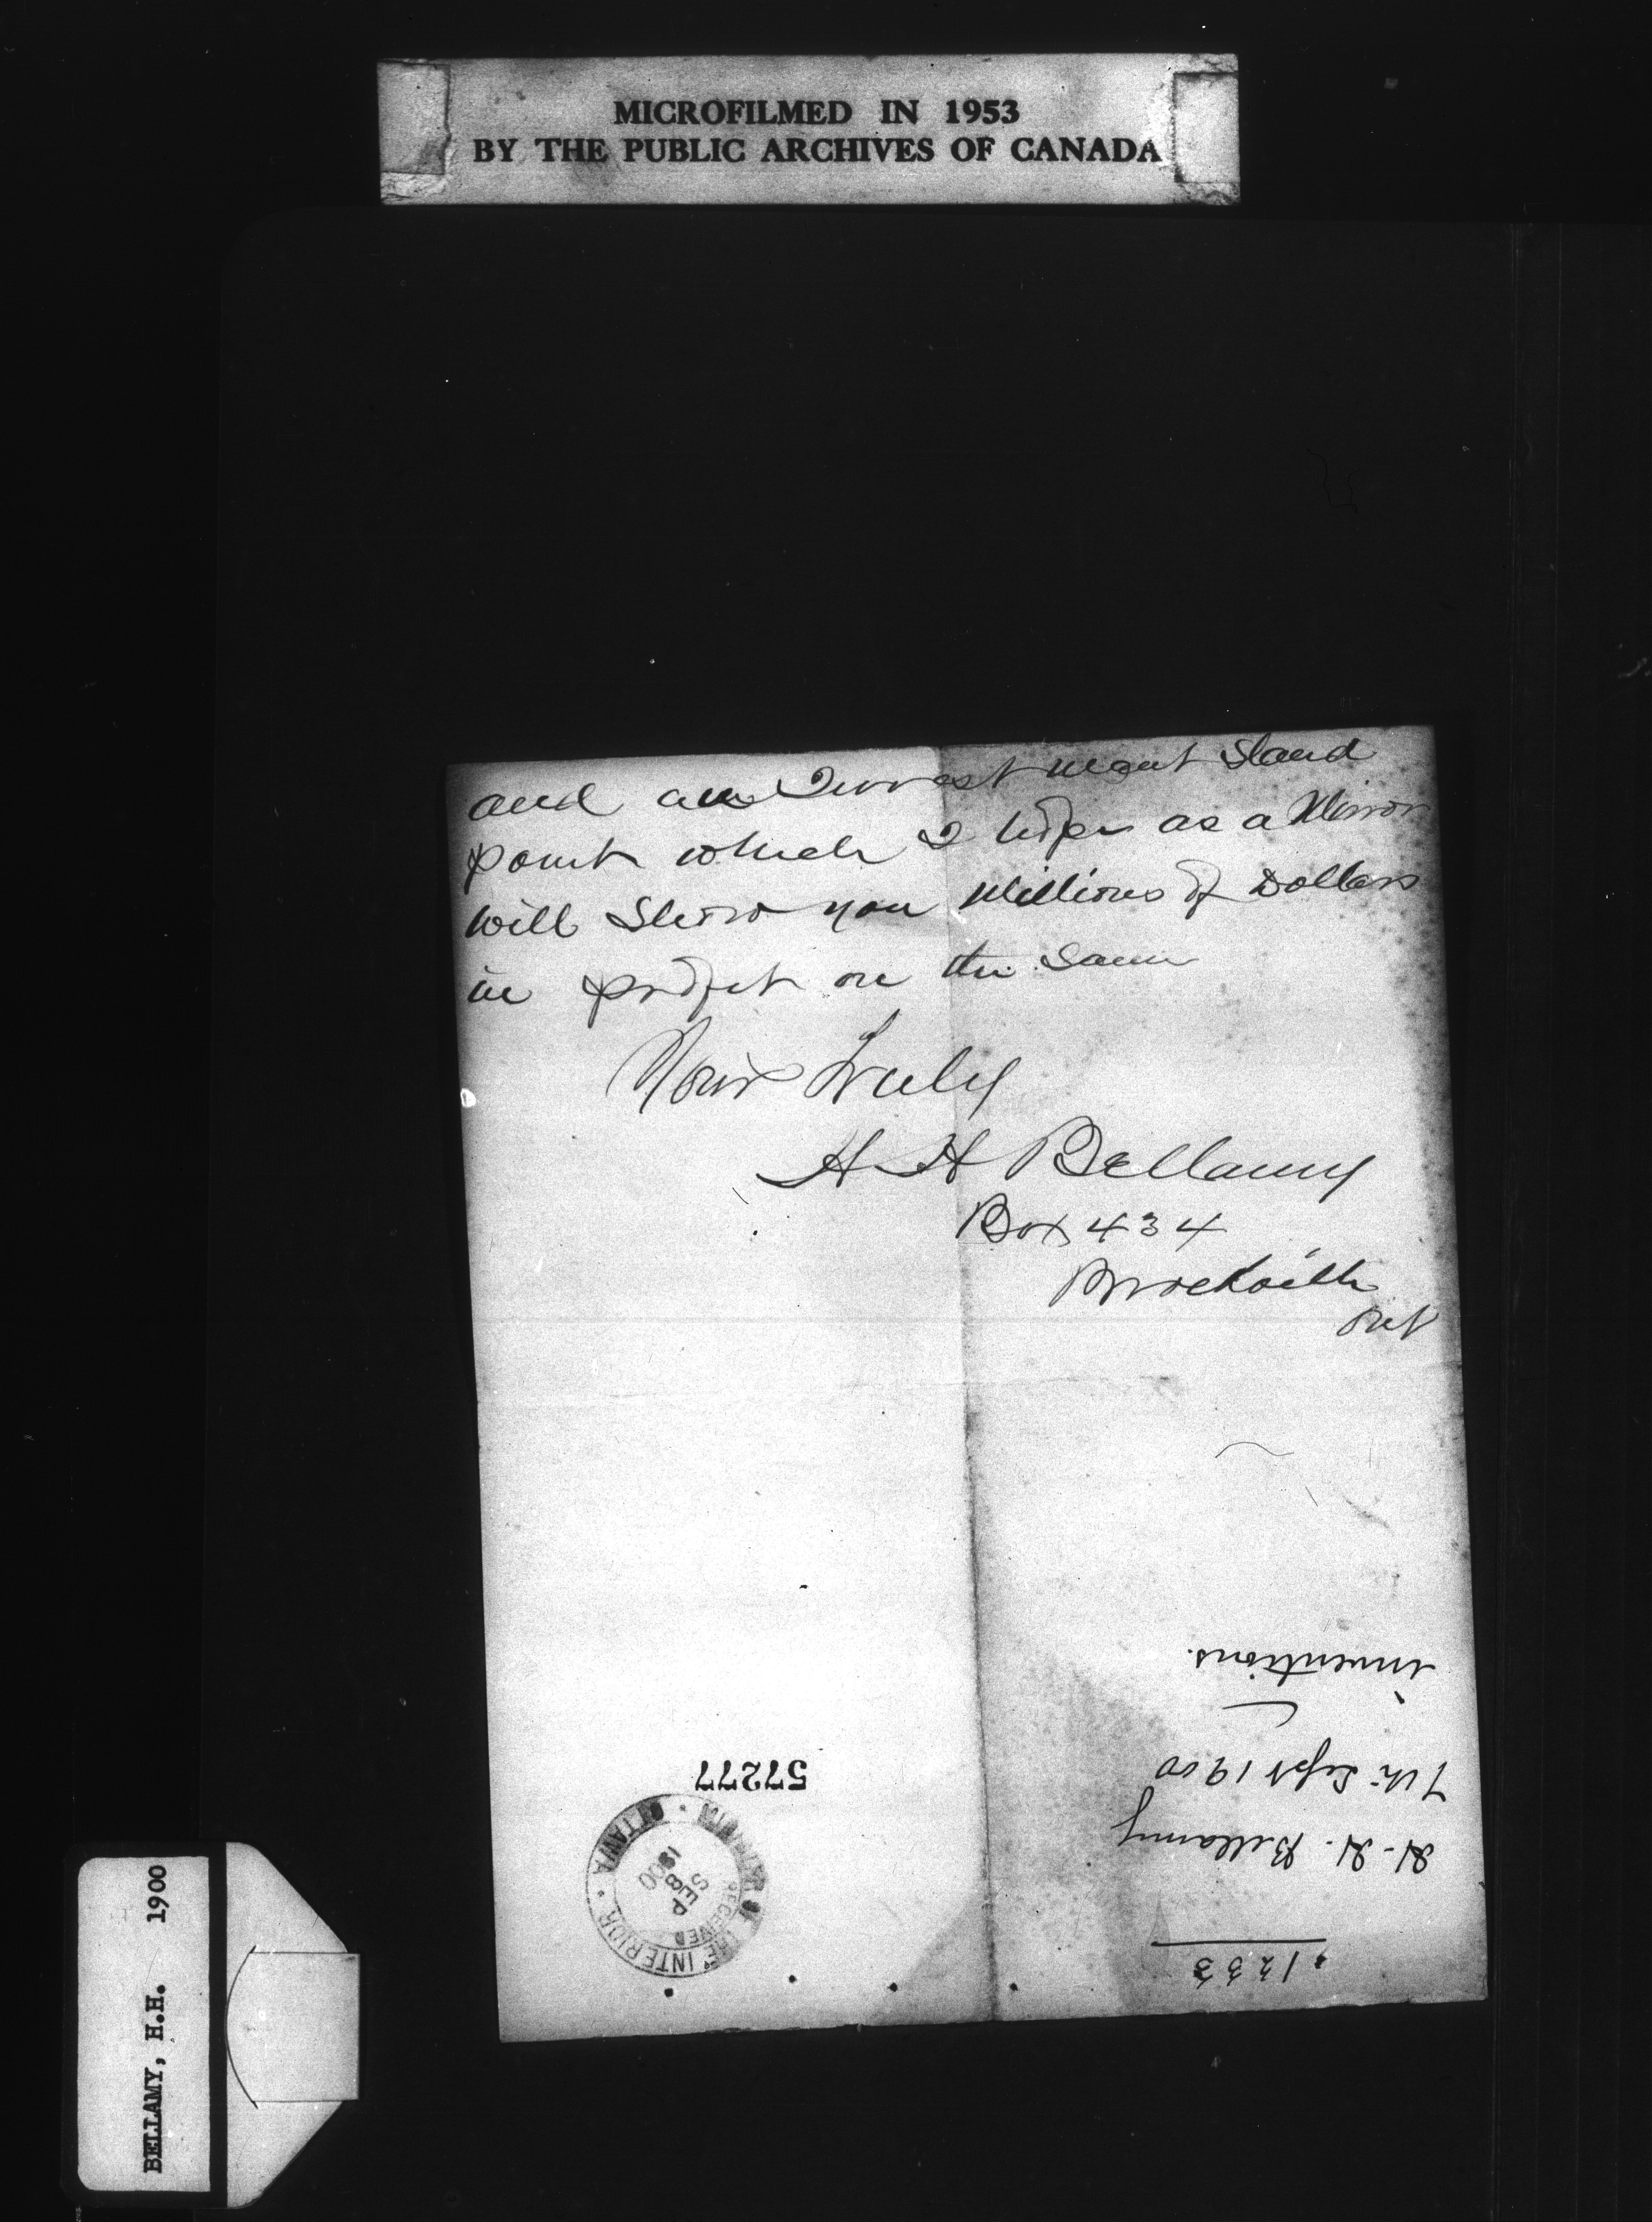 MICROFILMED IN 1953
BY THE PUBLIC ARCHIVES OF CANADA
and an Invest ment Stand
point which I hope as a Mirror
will Show you Millions of Dollars
in profit on the Same
Your Truly
H H Bellamy
Box 434
Brockville
Ont
1233
H. H. Bellamy
7th Sept 1900
inventions.
57277
DEPARTMENT OF THE INTERIOR · OTTAWA ·
RECEIVED
SEP
8
1900
BELLAMY, H.H. 1900